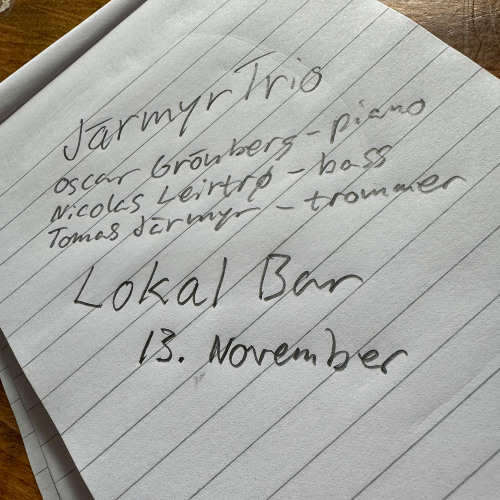 Järmyr Trio
Oscar Grönberg - piano
Nicolas Leirtrø - bass
Tomas Järmyr - trommer
Lokal Bar
13. November